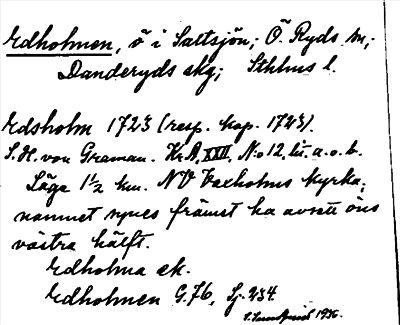 Edholmen, ö i Saltsjön; Ö. Ryds sn,
Danderyds skg; Sthlms l.
Edsholm 1723 (resp. kap. 1723).
S.H. von Graman. Kr.A, XXIII, No 12, lit. a. o. b.
Läge 1½ km. NV Vaxholms kyrka;
namnet synes främst ha avsett öns
västra hälft.
Edholma ek.
Edholmen G.76, Sj. 234.
1936.